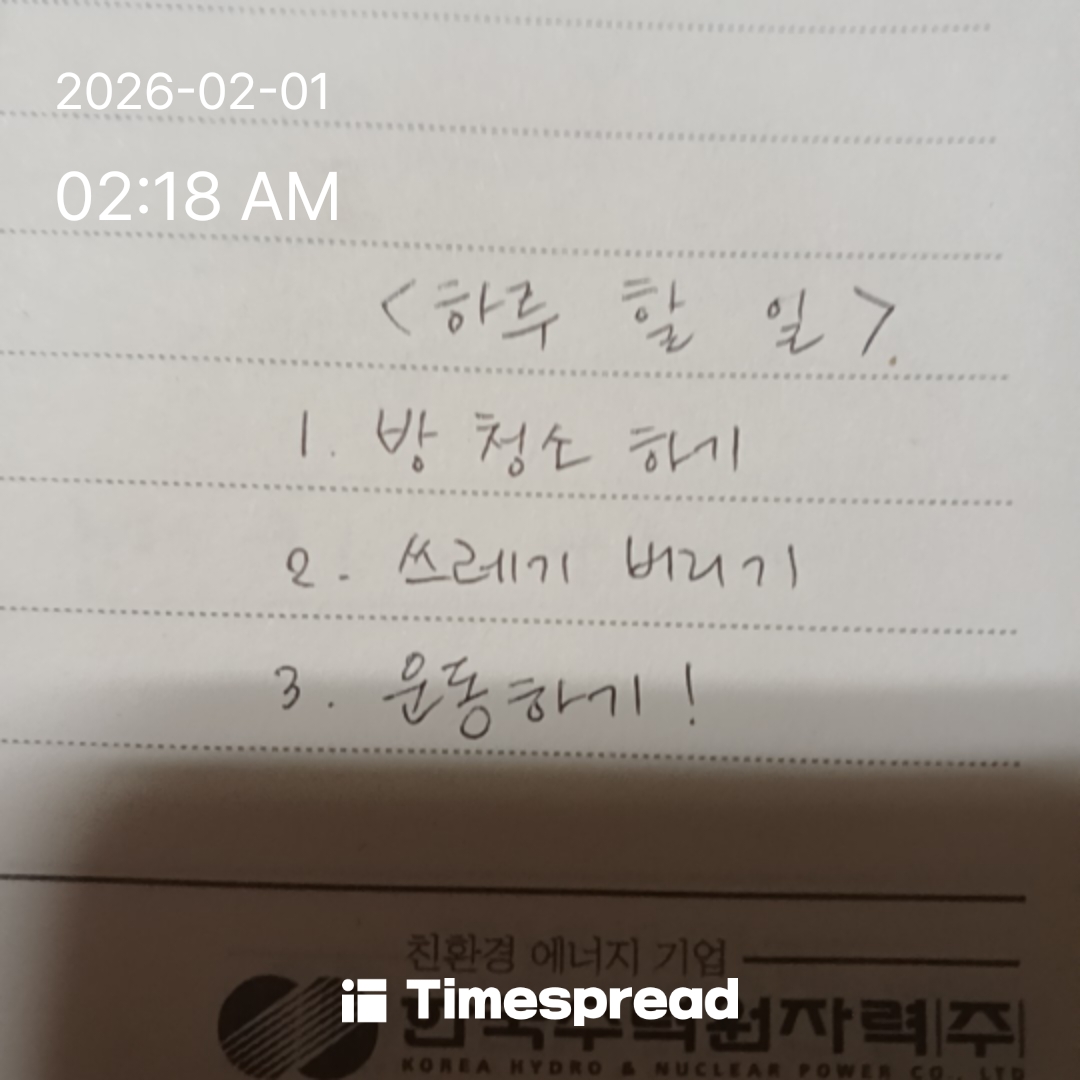 2026-02-01
02:18 AM
<하루 할 일>.
1. 방 청소 하기
2. 쓰레기 버리기
3. 운동하기!
친환경 에너지 기업
Timespread
한국수력원자력(주)
KOREA HYDRO & NUCLEAR POWER CO., LTD